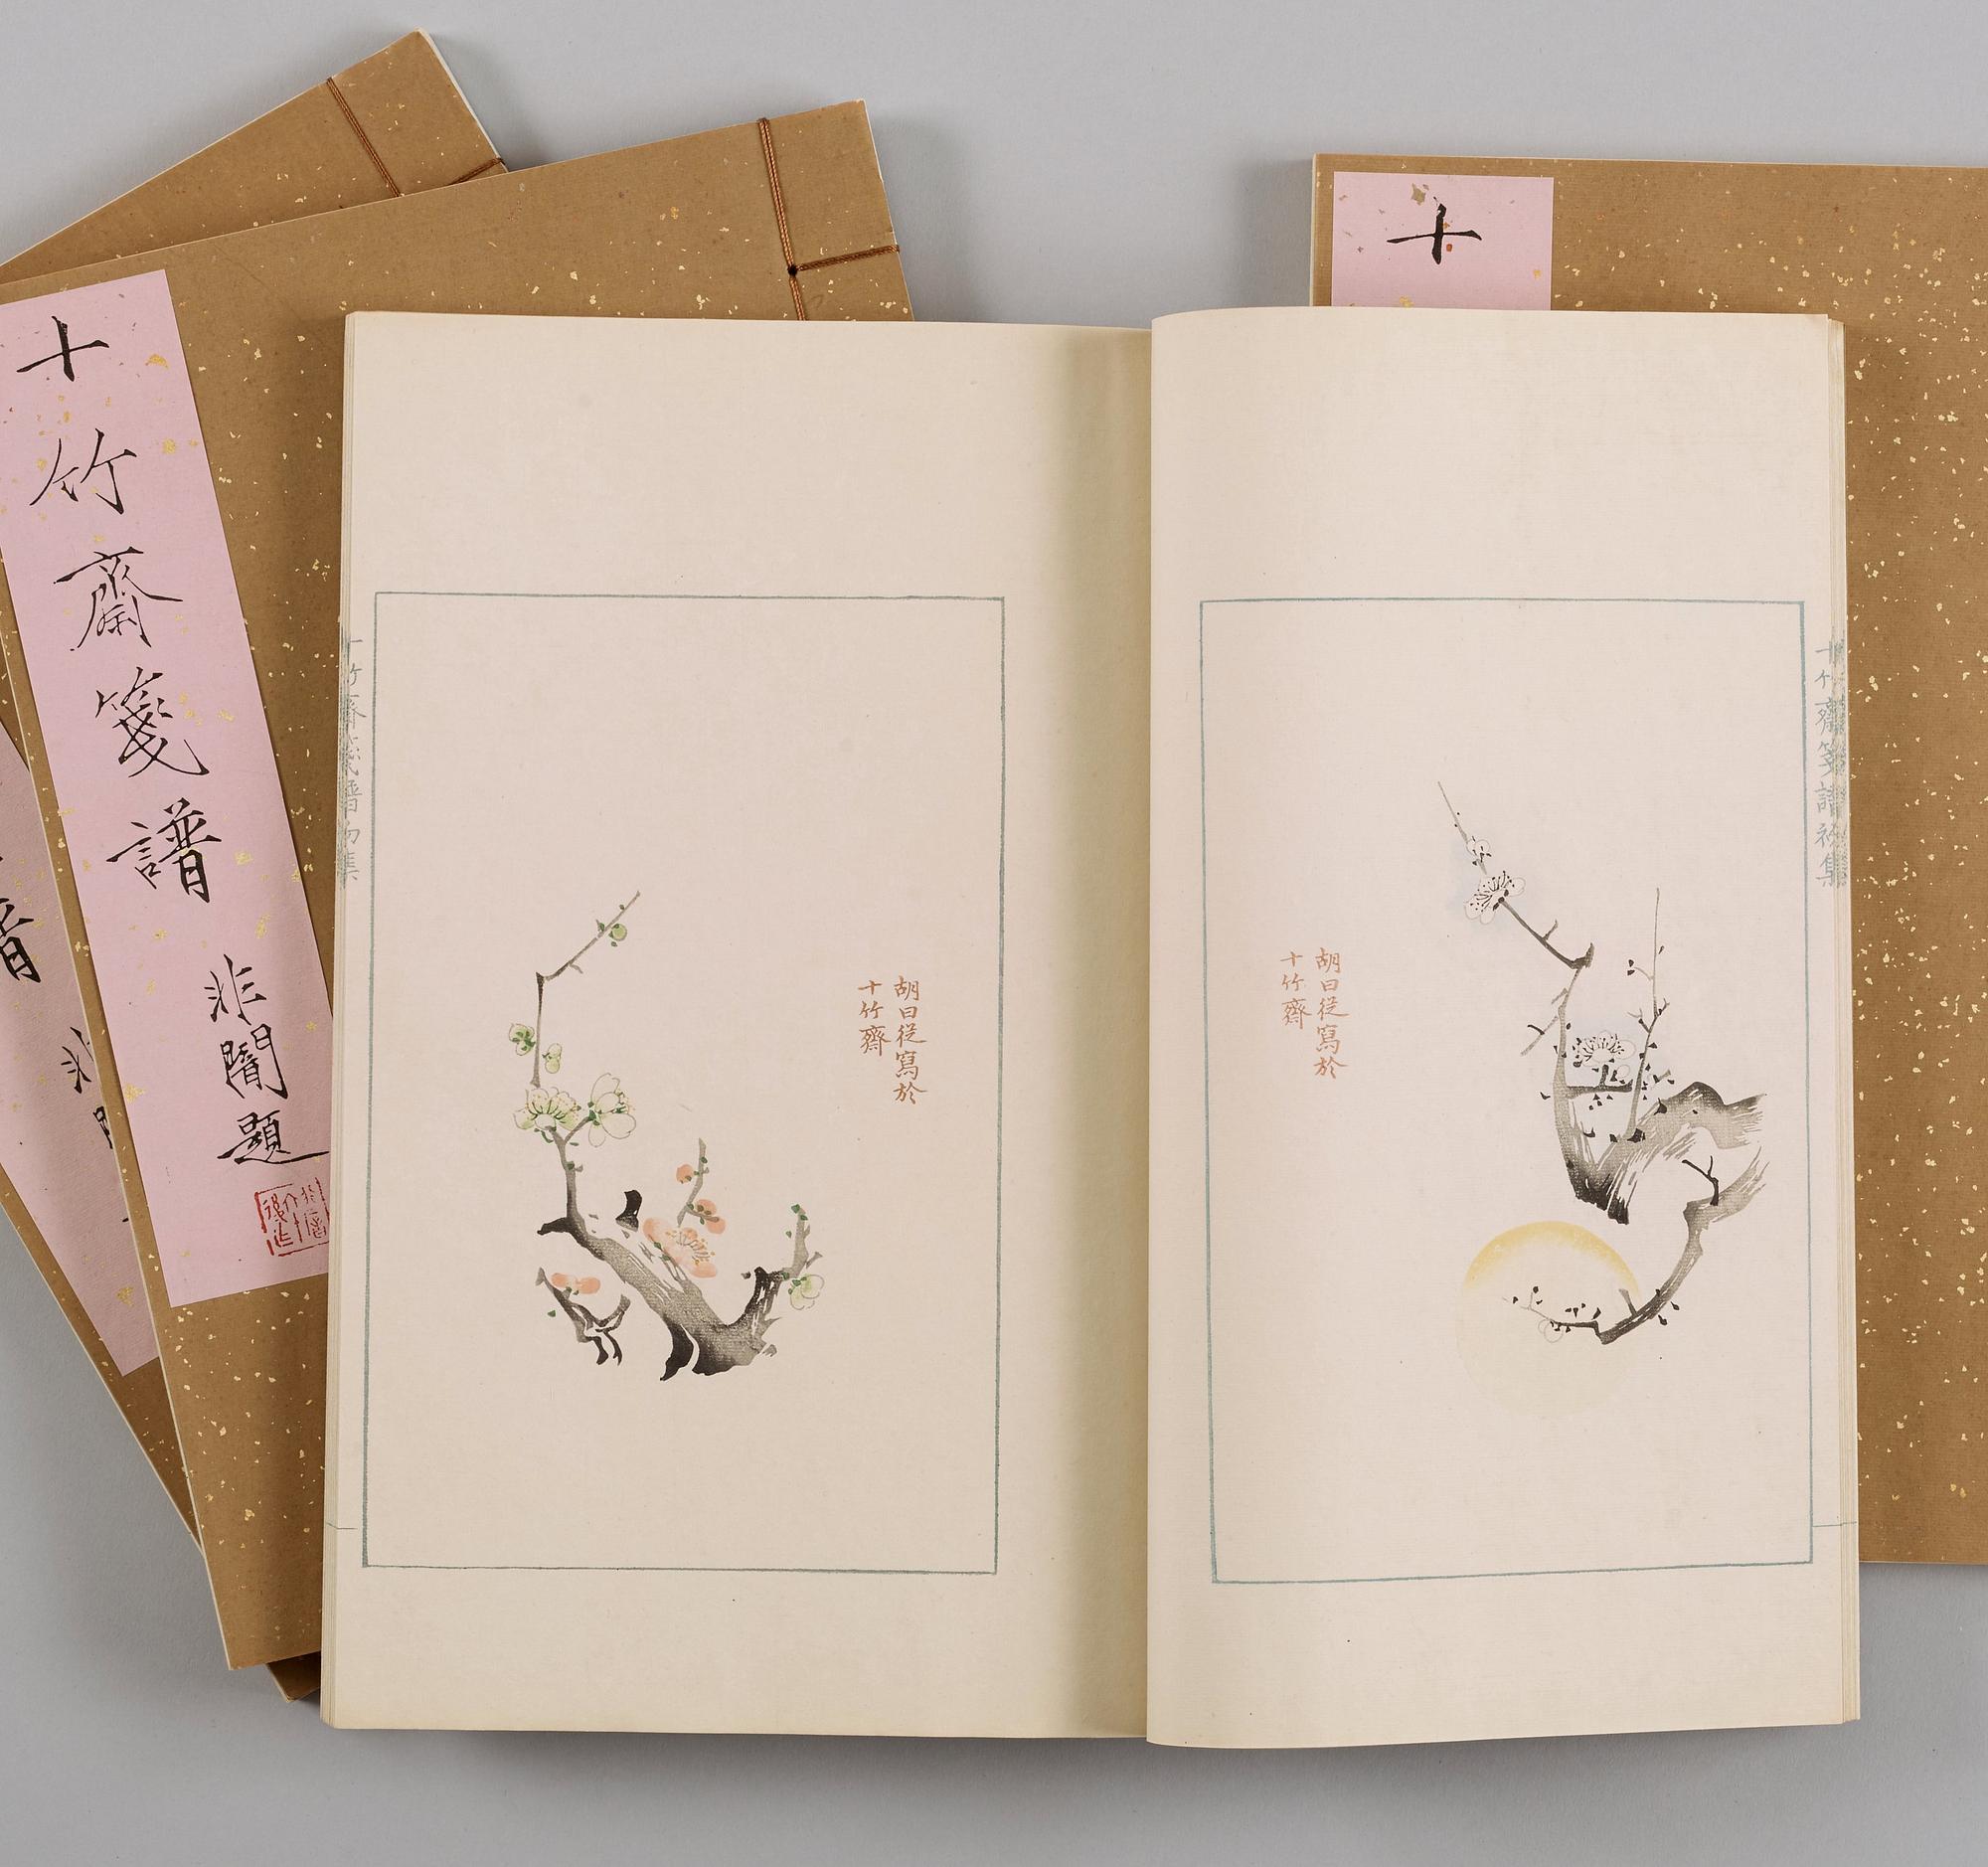 十竹齋箋譜
非闇題
譜
十
十竹齋箋譜初集
胡曰從寫於
十竹齋
胡曰從寫於
十竹齋
十竹齋箋譜初集